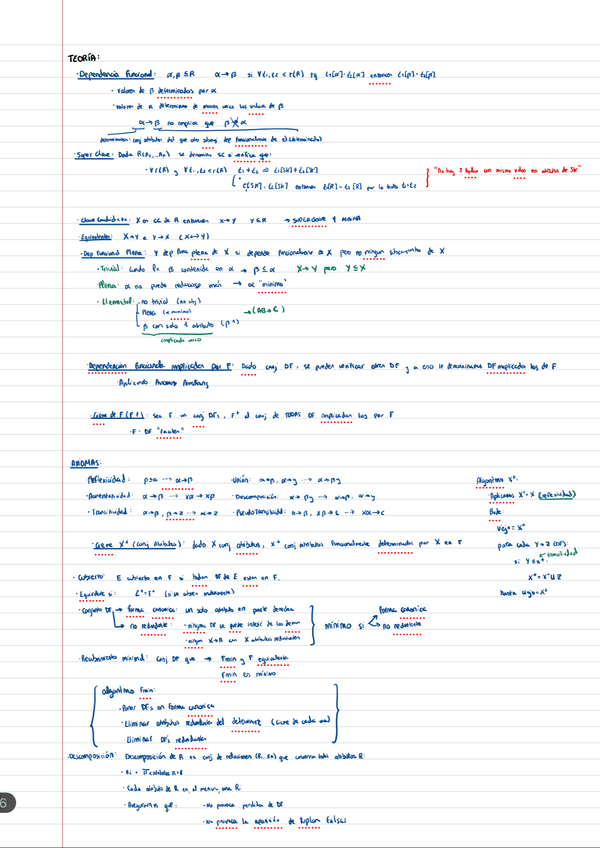 TEORÍA:
· Dependencia Funcional: α, β ⊆ R α→β si ∀ t1, t2 < r(R) tq t1[α]=t2[α] entonces t1[β]=t2[β]
- Valores de β determinados por α
- Valores de α determina de manera unica los valores de β
α→β no implica que β→α
determinante: conj atributos del que otro depende funcionalmente
· Super Clave: Dada R(A1,..An) se denomina SC si verifica que:
· ∀ r(R) y ∀ t1, t2 < r(R) t1 ≠ t2 ⇒ t1[SK] ≠ t2[SK]
t1[SK]=t2[SK] entonces t1[R]=t2[R] por lo tanto t1=t2
"No hay 2 tuplas con mismo valor en atributos de SK"
· Clave Candidata: X en CC de R entonces X→Y Y⊆R → SUPERCLAVE Y MINIMA
· Equivalentes: X→Y e Y→X (X↔Y)
· Dep Funcional Plena: Y dep func plena de X si depende funcionalmente de X pero no ningun subconjunto de X
· Trivial: cuando β contenido en α → β⊆α X→Y pero Y⊆X
Plena: α no puede reducirse más → α "minimo"
· Elemental: - no trivial
- Plena (α minimo) → (AB→C)
- β con solo 1 atributo (β=1)
(implicado unico)
· Dependencias funcionales implicadas por F: Dado conj DF, se pueden verificar otras DF y a eso le denominamos DF implicadas las de F
· Aplicando Axiomas Armstrong
· Cierre de F (F+): sea F un conj DFs, F+ el conj de TODAS DF implicadas por F
· F = DF "raices"
AXIOMAS:
· Reflexividad: β⊆α → α→β · Unión: α→β, α→γ → α→βγ
· Aumentatividad: α→β → xα→xβ · Descomposición: α→βγ → α→β, α→γ
· Transitividad: α→β, β→z → α→z · PseudoTransitividad: α→β, xβ→C → xα→C
· Cierre X+ (conj Atributos): dado X conj atributos, X+ conj atributos funcionalmente determinados por X en F
Algoritmo X+:
· Aplicamos X+=X (reflexividad)
Bucle
Viejo = X+
para cada Y→Z (DF):
si Y⊆X+:
X+ = X+ U Z
hasta viejo=X+
· Cubierto: E cubierto en F si todas DF de E estan en F.
· Equivalente si: E+=F+
· Conjunto DF → forma canonica: un solo atributo en parte derecha
→ no redundante: · ninguna DF se puede inferir de las demas
· ningun X→A con X atributos redundantes
minimo si forma canonica
no redundante
· Recubrimiento minimal: conj DF que → Fmin y F equivalente
Fmin es minimo
algoritmo Fmin:
· Poner DFs en forma canonica
· Eliminar atributos redundantes del determinante (cierre de cada uno)
· Eliminar DFs redundantes
DESCOMPOSICIÓN: Descomposición de R es conj de relaciones (R1...Rn) que conserva todos atributos R:
· Cada atributo de R en, al menos, una R
· Asegurarnos que: · No provoca perdidas de DF
· No provoca la aparición de tuplas falsas
6